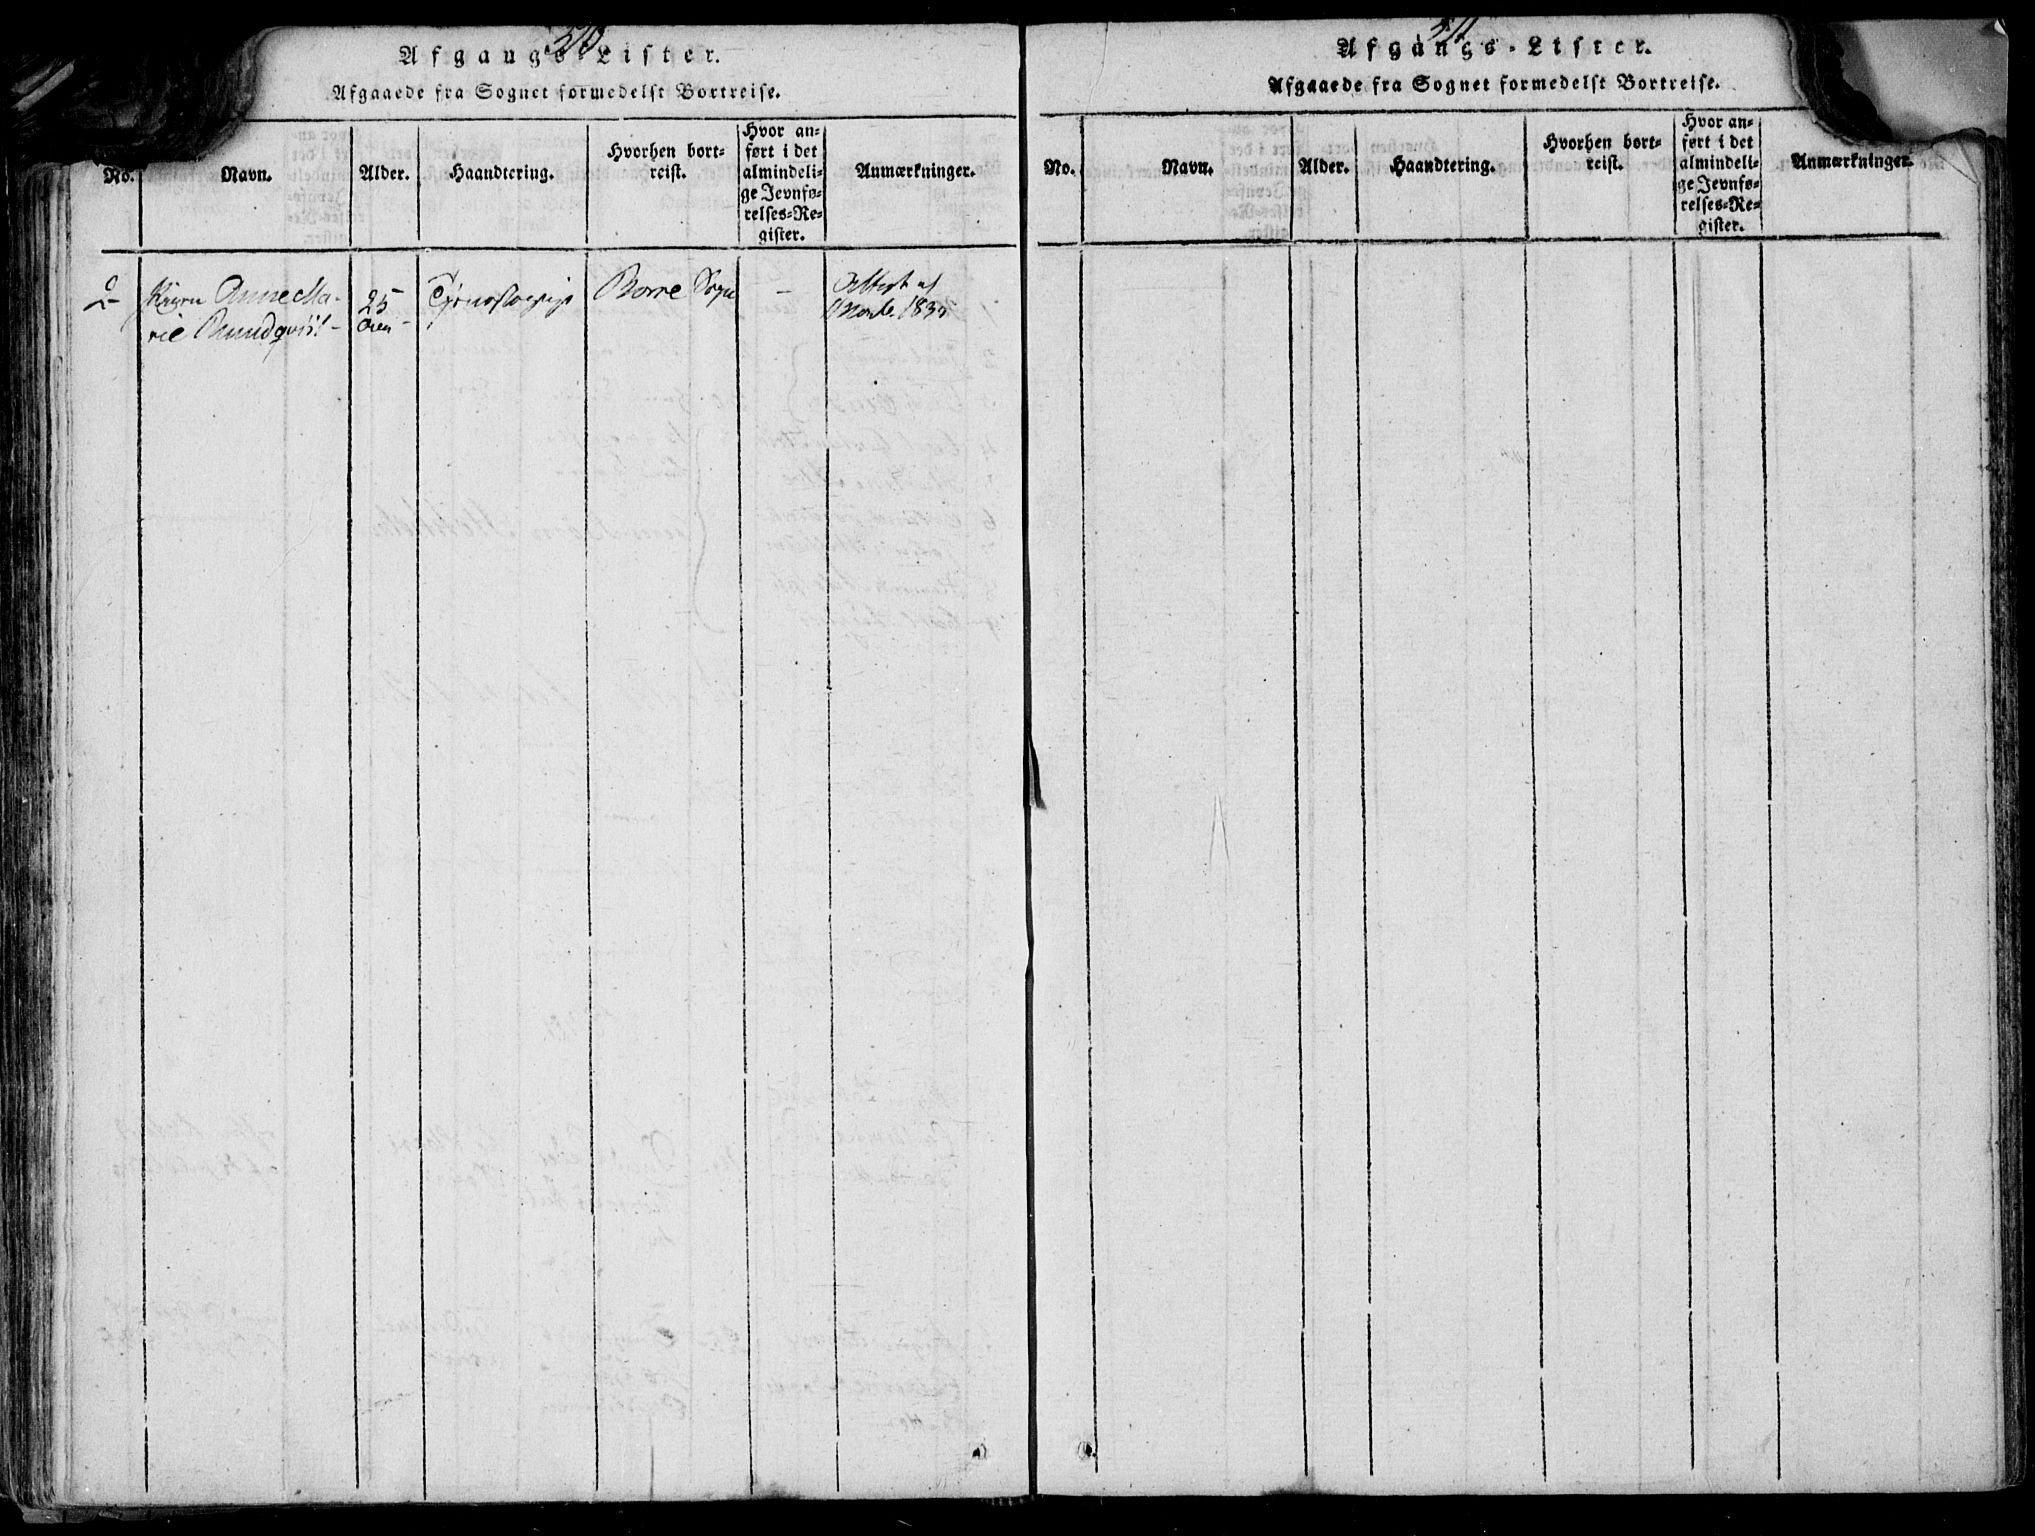 510
Afgangs-Lister.
Afgaaede fra Sognet formedelst Bortreise.
No.
Navn.
Alder.
Haandtering.
Hvorhen bort-
reist.
Hvor an-
ført i det
almindeli-
ge Jevnfø-
relses-Re-
gister.
Anmærkninger.
2
Anne Ma-
rie Rundqvist
25
Borre Sogn
-
Attest af
511
Afgangs-Lister.
Afgaaede fra Sognet formedelst Bortreise.
No.
Navn.
Alder.
Haandtering.
Hvorhen bort-
reist.
Hvor an-
ført i det
almindeli-
ge Jevnfø-
relses-Re-
gister.
Anmærkninger.